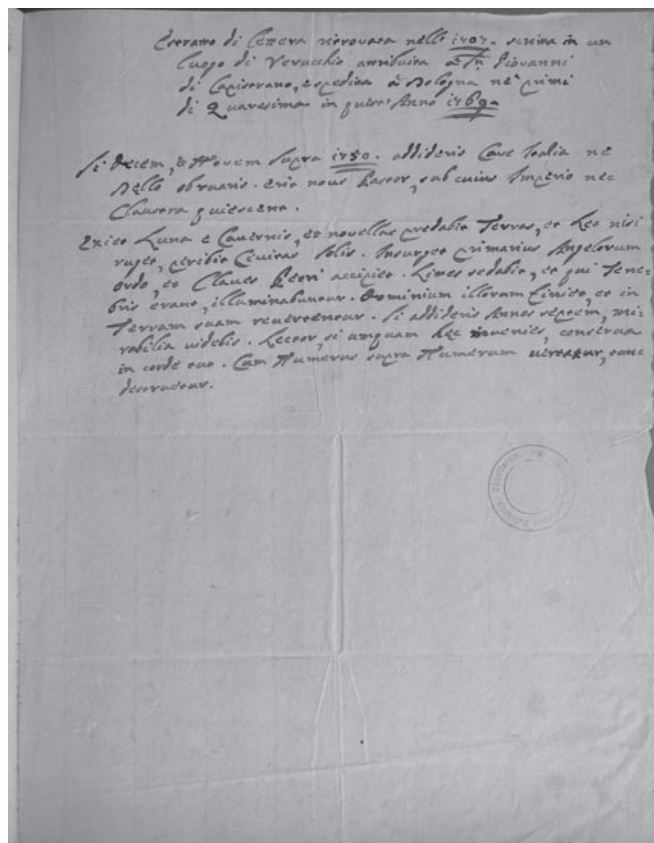 Estratto di Lettera ritrovata nell' 1707. scritta in un
luogo di Verucchio attribuita à Sn. Giovanni
di Capistrano, e spedita à Bologna ne' primi
di Quaresima in quest' Anno 1769.
Si Decem, et Novem supra 1750. addideris Cave Italia ne
Bello obruaris. erit nous Pastor, sub cuius Imperio nec
Claustra quiescent.
Exiet Luna e Cavernis, et novellas predabit Terras, et Leo nisi
ruget, peribit Civitas Solis. Insurget primarius Angelorum
ordo, et Claves Petri accipiet. Limes sedabit, et qui Tene=
bris erant, illuminabuntur. Dominium illorum finiet, et in
Terram suam revertentur. Si addideris Annos septem, mi,
rabilia videbis. Lector, si umquam hec invenies, conserva
in corde tuo. Cum Numerus supra Numerum vertatur, tunc
destruetur.